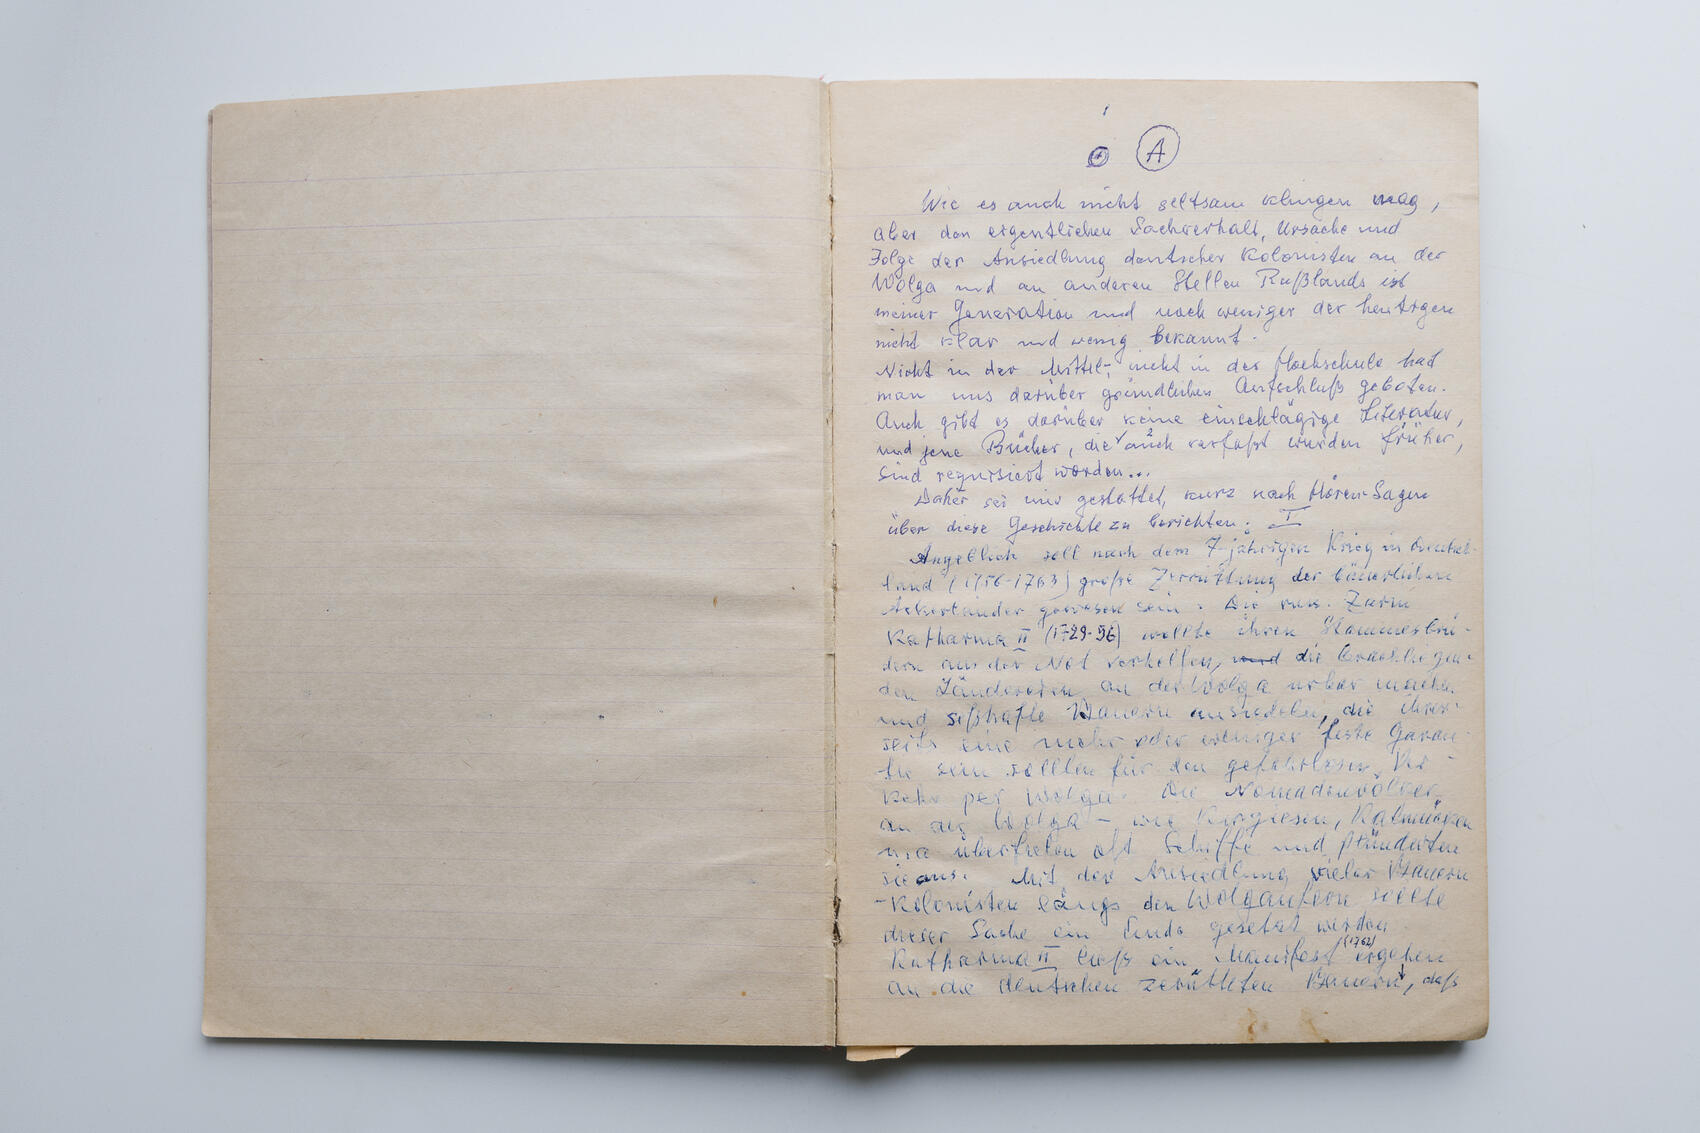 A
Wie es auch nicht seltsam klingen mag,
aber den eigentlichen Sachverhalt, Ursache und
Folge der Ansiedlung deutscher Kolonisten an der
Wolga und an anderen Stellen Rußlands ist
meiner Generation und noch weniger der heutigen
nicht klar und wenig bekannt.
Nicht in der Mittel-, nicht in der Hochschule had
man uns darüber gründlichen Aufschluß geboten.
Auch gibt es darüber keine einschlägige Literatur,
und jene Bücher, die auch verfaßt wurden früher,
sind requisiert worden...
Daher sei mir gestattet, kurz nach Hören-Sagen
über diese Geschichte zu berichten: I
Angeblich soll nach dem 7-jährigen Krieg in Deutsch-
land (1756-1763) große Zerrüttung der bäuerlichen
Ackerländer gewesen sein. Die rus. Zarin
Katharina II (1729-96) wollte ihren Stammesbrü-
dern aus der Not verhelfen, und die brachliegen-
den Ländereien an der Wolga urbar machen
und seßhafte Bauern ansiedeln, die ihrer-
seits eine mehr oder weniger feste Garan-
tie sein sollten für den gefahrlosen Ver-
kehr per Wolga. Die Nomadenvölker
an der Wolga - wie Kirgiesen, Kalmücken
u.a überfielen oft Schiffe und plünderten
sie aus. Mit der Ansiedlung vieler Bauern
-Kolonisten längs den Wolgaufern sollte
dieser Sache ein Ende gesetzt werden.
Katharina II ließ ein Manifest (1762) ergehen
an die deutschen zerütteten Bauern, daß